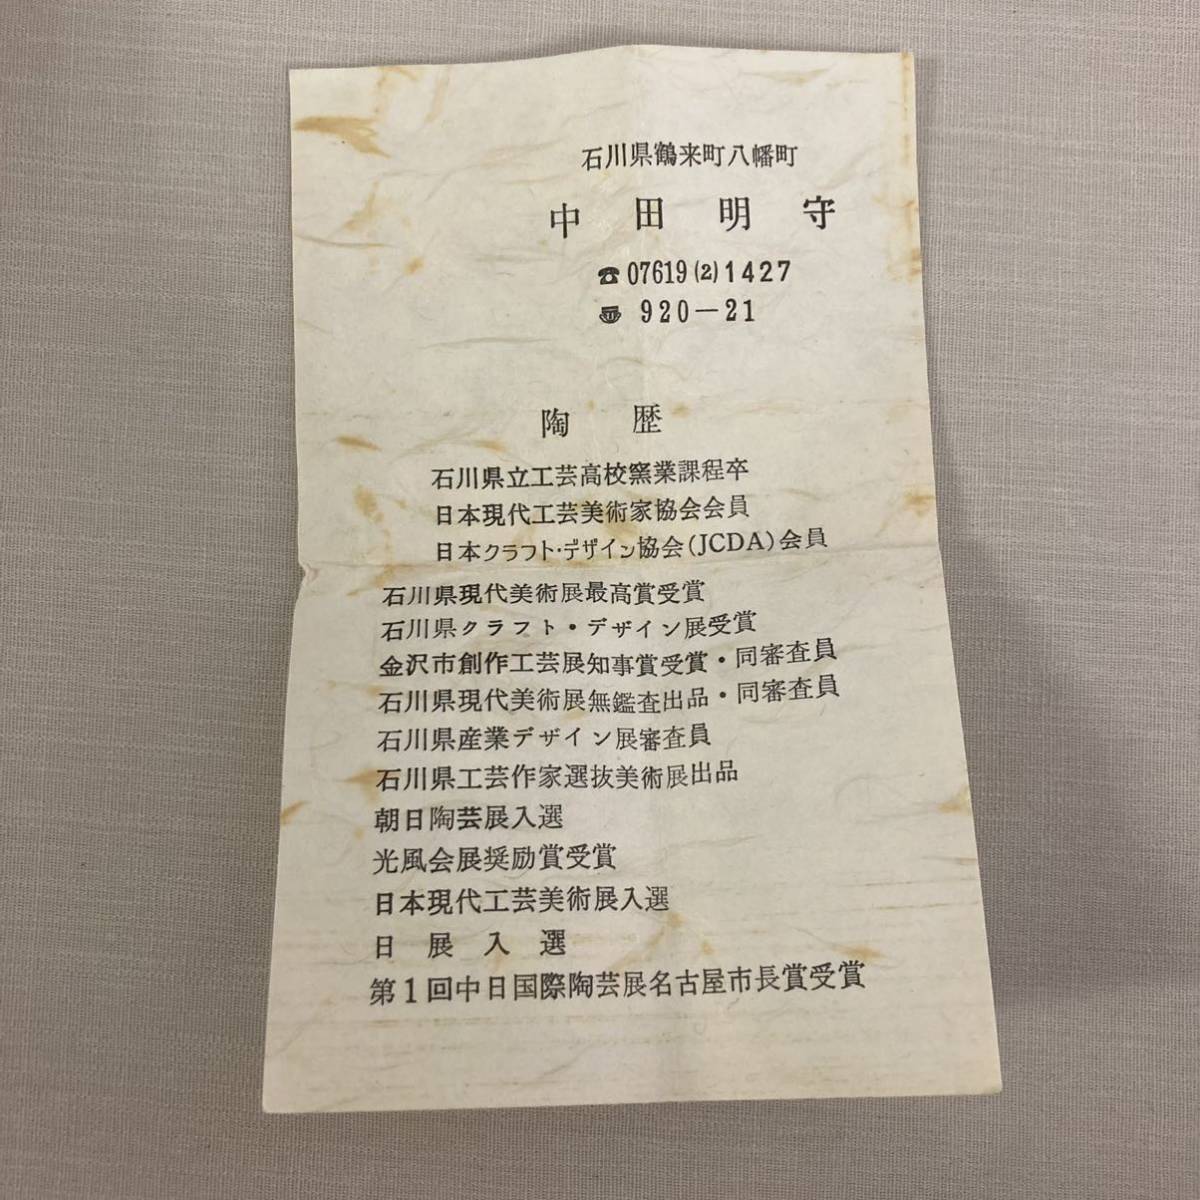 石川県鶴来町八幡町
中田明守
☎07619(2)1427
920-21
陶歴
石川県立工芸高校窯業課程卒
日本現代工芸美術家協会会員
日本クラフト・デザイン協会(JCDA)会員
石川県現代美術展最高賞受賞
石川県クラフト・デザイン展受賞
金沢市創作工芸展知事賞受賞・同審査員
石川県現代美術展無鑑査出品・同審査員
石川県産業デザイン展審査員
石川県工芸作家選抜美術展出品
朝日陶芸展入選
光風会展奨励賞受賞
日本現代工芸美術展入選
日展入選
第1回中日国際陶芸展名古屋市長賞受賞